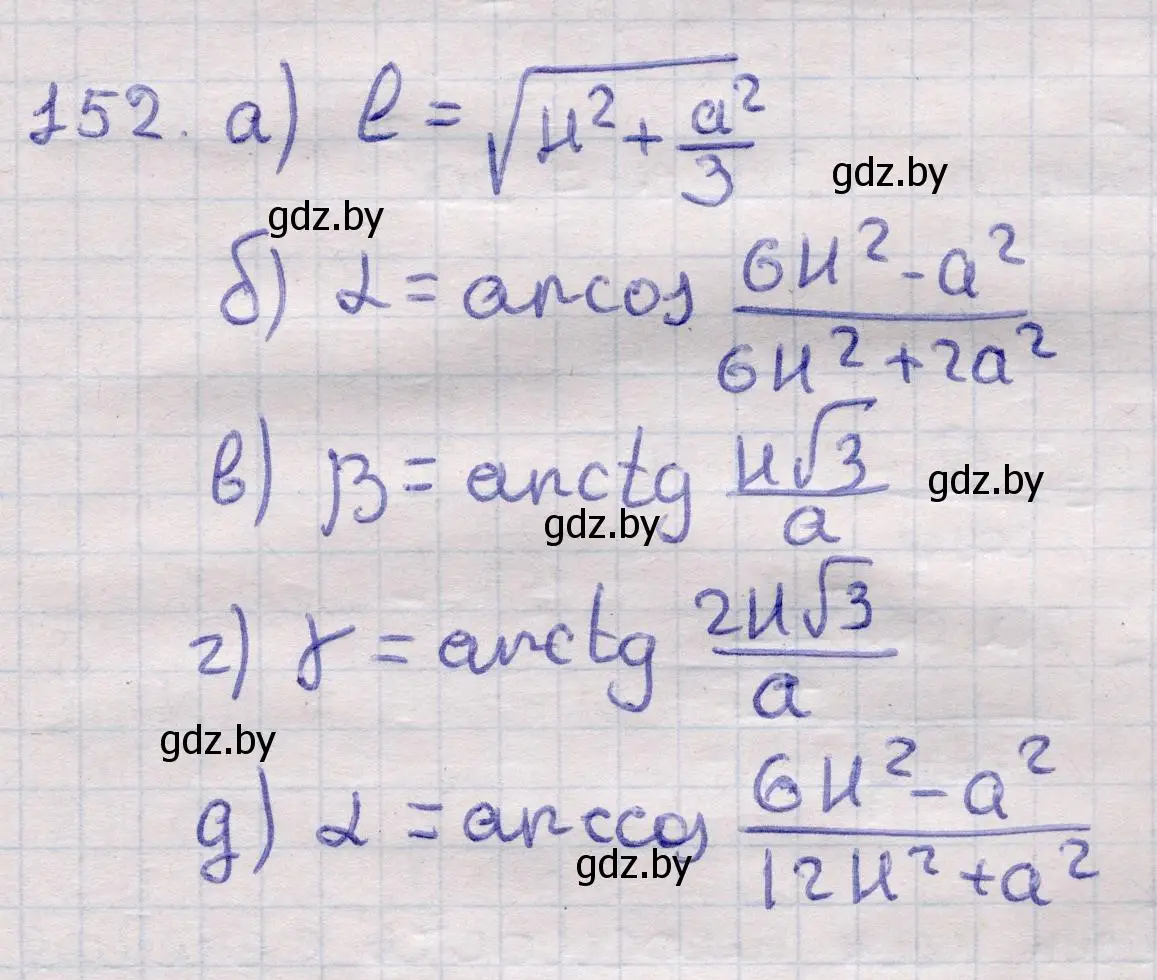 152. а) l = √(H² + a²/3)
gdz.by
gdz.by
б) α = arccos (6H² - a²)/(6H² + 2a²)
в) β = arctg (H√3)/a
gdz.by
gdz.by
г) γ = arctg (2H√3)/a
gdz.by
д) α = arccos (6H² - a²)/(12H² + a²)
gdz.by